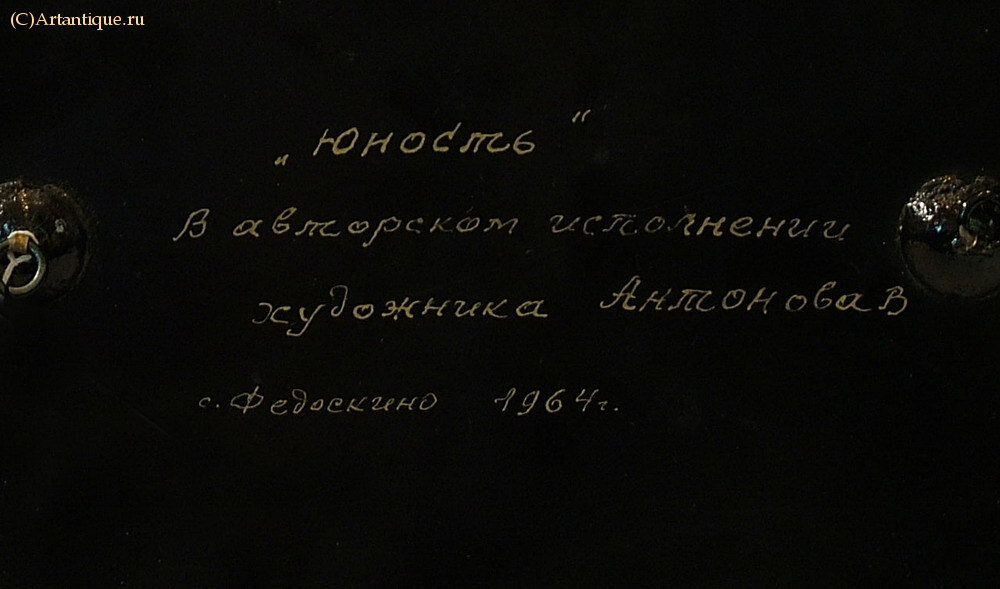 (C)Artantique.ru
„Юность"
В авторском исполнении
художника Антонова В
с. Федоскино 1964г.